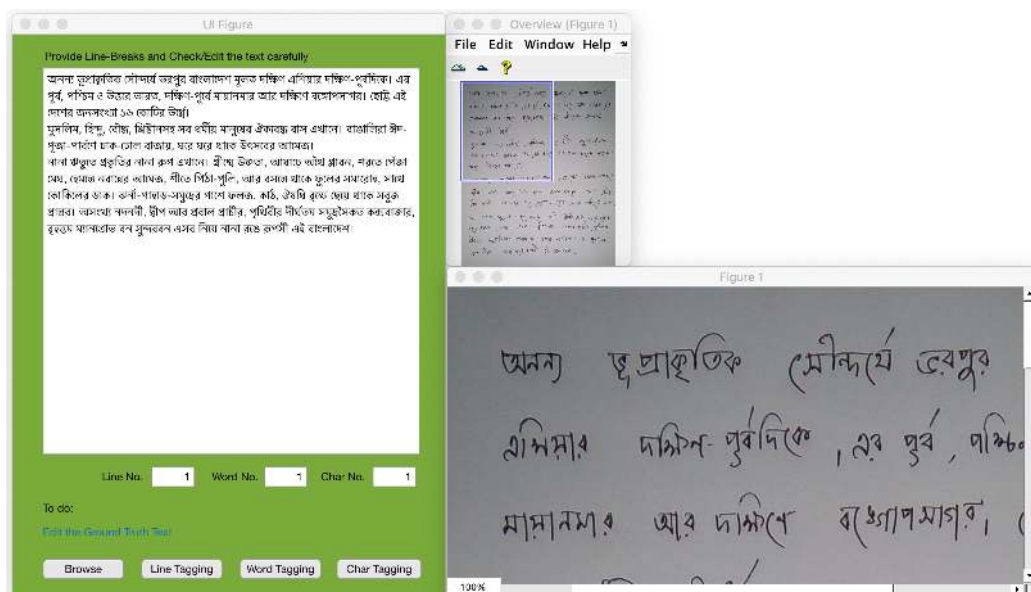 UI Figure
Provide Line-Breaks and Check/Edit the text carefully
অনন্য ভূপ্রাকৃতিক সৌন্দর্যে ভরপুর বাংলাদেশ মূলত দক্ষিণ এশিয়ার দক্ষিণ-পূর্বদিকে। এর
পূর্ব, পশ্চিম ও উত্তরে ভারত, দক্ষিণ-পূর্বে মায়ানমার আর দক্ষিণে বঙ্গোপসাগর। ছোট্ট এই
দেশের জনসংখ্যা ১৬ কোটির উর্ধ্বে।
মুসলিম, হিন্দু, বৌদ্ধ, খ্রিষ্টানসহ সব ধর্মীয় মানুষের ঐক্যবদ্ধ বাস এখানে। বাঙালিরা ঈদ-
পূজা-পার্বণে ঢাক-ঢোল বাজায়, ঘরে ঘরে থাকে উৎসবের আমেজ।
নানা ঋতুতে প্রকৃতির নানা রূপ এখানে। গ্রীষ্মে উষ্ণতা, আষাঢ়ে অথৈ প্লাবন, শরতে পেঁজা
মেঘ, হেমন্তে নবান্নের আমেজ, শীতে পিঠা-পুলি, আর বসন্তে থাকে ফুলের সমারোহ, সাথে
কোকিলের ডাক। ঝর্না-পাহাড়-সমুদ্রের পাশে ফলজ, কাঠ, ঔষধি বৃক্ষে ছেয়ে থাকে সবুজ
প্রান্তর। অসংখ্য নদনদী, দ্বীপ আর প্রবাল প্রাচীর, পৃথিবীর দীর্ঘতম সমুদ্রসৈকত কক্সবাজার,
বৃহত্তম ম্যানগ্রোভ বন সুন্দরবন এসব নিয়ে নানা রঙে রূপসী এই বাংলাদেশ।
Line No. 1 Word No. 1 Char No. 1
To do:
Edit the Ground Truth Text
Browse Line Tagging Word Tagging Char Tagging
Overview (Figure 1)
File Edit Window Help
Figure 1
অনন্য ভূপ্রাকৃতিক সৌন্দর্যে ভরপুর
এশিয়ার দক্ষিণ-পূর্বদিকে। এর পূর্ব,
মায়ানমার আর দক্ষিণে বঙ্গোপসাগর।
100%